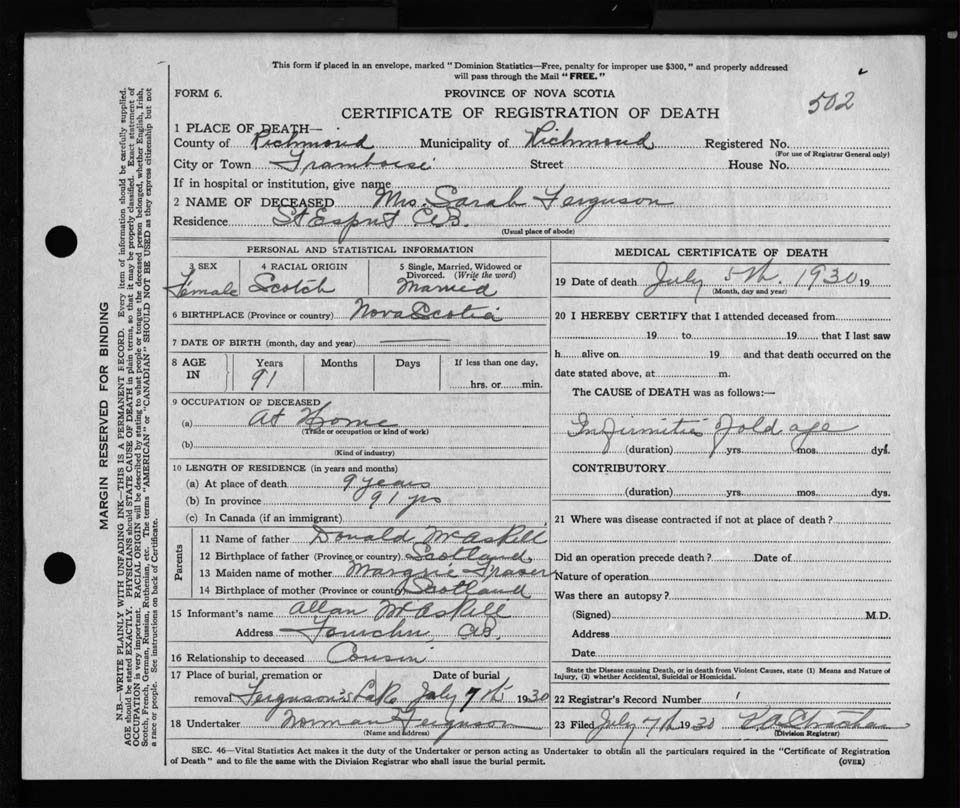 This form if placed in an envelope, marked "Dominion Statistics—Free, penalty for improper use $300," and properly addressed
will pass through the Mail "FREE."
FORM 6.
PROVINCE OF NOVA SCOTIA
502
CERTIFICATE OF REGISTRATION OF DEATH
1 PLACE OF DEATH—
County of Richmond Municipality of Richmond Registered No.
(For use of Registrar General only)
City or Town Framboise Street House No.
If in hospital or institution, give name
2 NAME OF DECEASED Mrs. Sarah Ferguson
Residence St Esprit C.B.
(Usual place of abode)
PERSONAL AND STATISTICAL INFORMATION
3 SEX 4 RACIAL ORIGIN 5 Single, Married, Widowed or
Divorced. (Write the word)
Female Scotch Married
6 BIRTHPLACE (Province or country) Nova Scotia
7 DATE OF BIRTH (month, day and year)
8 AGE Years Months Days If less than one day,
IN 91 hrs. or min.
9 OCCUPATION OF DECEASED
(a) At Home
(Trade or occupation or kind of work)
(b)
(Kind of industry)
10 LENGTH OF RESIDENCE (in years and months)
(a) At place of death 9 years
(b) In province 91 yrs
(c) In Canada (if an immigrant)
Parents
11 Name of father Donald McAskill
12 Birthplace of father (Province or country) Scotland
13 Maiden name of mother Margsie Fraser
14 Birthplace of mother (Province or country) Scotland
15 Informant's name Allan McAskill
Address C.B.
16 Relationship to deceased Cousin
17 Place of burial, cremation or Date of burial
removal Ferguson's Lake July 7th 1930
18 Undertaker Norman Ferguson
(Name and address)
MEDICAL CERTIFICATE OF DEATH
19 Date of death July 5th. 1930 19
(Month, day and year)
20 I HEREBY CERTIFY that I attended deceased from
19 to 19 that I last saw
h alive on 19 and that death occurred on the
date stated above, at m.
The CAUSE of DEATH was as follows:—
Infirmities of old age
(duration) yrs. mos. dys.
CONTRIBUTORY
(duration) yrs. mos. dys.
21 Where was disease contracted if not at place of death?
Did an operation precede death? Date of
Nature of operation
Was there an autopsy?
(Signed) M.D.
Address
Date
State the Disease causing Death, or in death from Violent Causes, state (1) Means and Nature of
Injury, (2) whether Accidental, Suicidal or Homicidal.
22 Registrar's Record Number 1
23 Filed July 7th 1930
(Division Registrar)
SEC. 46—Vital Statistics Act makes it the duty of the Undertaker or person acting as Undertaker to obtain all the particulars required in the "Certificate of Registration
of Death" and to file the same with the Division Registrar who shall issue the burial permit. (OVER)
MARGIN RESERVED FOR BINDING
N.B.—WRITE PLAINLY WITH UNFADING INK—THIS IS A PERMANENT RECORD. Every item of information should be carefully supplied.
AGE should be stated EXACTLY. PHYSICIANS should STATE CAUSE OF DEATH in plain terms, so that it may be properly classified. Exact statement of
OCCUPATION is very important. RACIAL ORIGIN will be described by stating to what people or tongue the deceased person belonged, whether English, Irish,
Scotch, French, German, Russian, Ruthenian, etc. The terms "AMERICAN" or "CANADIAN" SHOULD NOT BE USED as they express citizenship but not
a race or people. See instructions on back of Certificate.